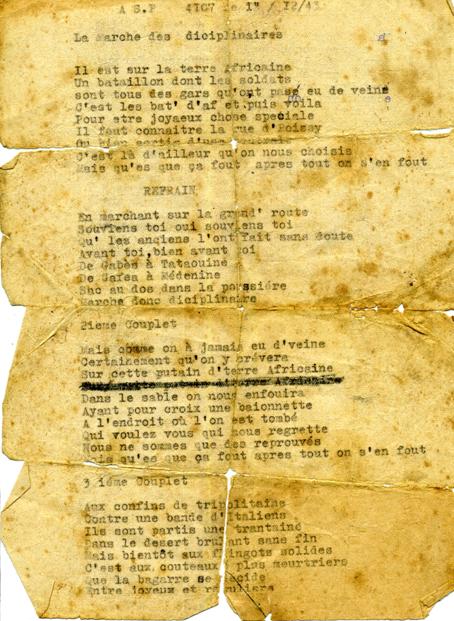 A S.P 4107 le 1° / 12/43
La Marche des diciplinaires
Il est sur la terre Africaine
Un bataillon dont les soldats
sont tous des gars qu'ont pas eu de veine
C'est les bat' d'af et puis voila
Pour etre joyaeux chose speciale
Il faut connaitre la rue d'Poissy
Ou bien sortir d'une
C'est là d'ailleur qu'on nous choisis
Mais qu'es que ça fout apres tout on s'en fout
REFRAIN
En marchant sur la grand' route
Souviens toi oui souviens toi
Qu' les angiens l'ont fait sans doute
Avant toi,bien avant toi
De Gabès à Tataouine
De Gafsa à Médenine
Shc au dos dans la poussiére
Marche donc diciplinaire
2ieme Couplet
Mais comme on à jamais eu d'veine
Certainement qu'on y crévera
Sur cette putain d'terre Africaine
Dans le sable on nous enfouira
Ayant pour croix une baionnette
A l'endroit où l'on est tombé
Qui voulez vous qui nous regrette
Nous ne sommes que des reprouvés
Mais qu'es que ça fout apres tout on s'en fout
3 iéme Couplet
Aux confins de tripolitaine
Contre une bande d'Italiens
Ils sont partis une trantaine
Dans le desert brulant sans fin
Mais bientôt aux flingots solides
C'est aux couteaux plus meurtriers
Que la bagarre se décide
Entre joyeux et reguliers